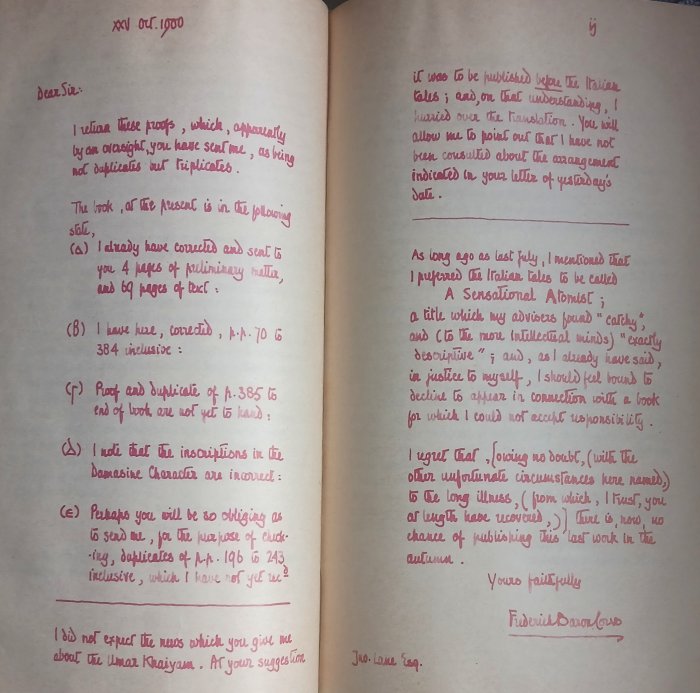 XXV Oct. 1900
Dear Sir:
I return these proofs, which, apparently
by an oversight, you have sent me, as being
not duplicates but triplicates.
The book, at the present is in the following
state,
(α) I already have corrected and sent to
you 4 pages of preliminary matter,
and 69 pages of text:
(β) I have here, corrected, p.p. 70 to
384 inclusive:
(γ) Proof and duplicate of p. 385 to
end of book are not yet to hand:
(Δ) I note that the inscriptions in the
Damasine Character are incorrect:
(ε) Perhaps you will be so obliging as
to send me, for the purpose of check-
-ing, duplicates of p.p. 196 to 243
inclusive, which I have not yet recd
I did not expect the news which you give me
about the Umar Khaiyam. At your suggestion
ij
it was to be published before the Italian
tales; and, on that understanding, I
hurried over the translation. You will
allow me to point out that I have not
been consulted about the arrangement
indicated in your letter of yesterday's
date.
As long ago as last July, I mentioned that
I preferred the Italian tales to be called
A Sensational Atomist;
a title which my advisers found "catchy",
and (to the more intellectual minds) "exactly
descriptive"; and, as I already have said,
in justice to myself, I should feel bound to
decline to appear in connection with a book
for which I could not accept responsibility.
I regret that, [owing no doubt, (with the
other unfortunate circumstances here named,)
to the long illness, (from which, I trust, you
at length have recovered,)] there is, now, no
chance of publishing this last work in the
autumn.
Yours faithfully
Frederick Baron Corvo
Jno. Lane Esq.